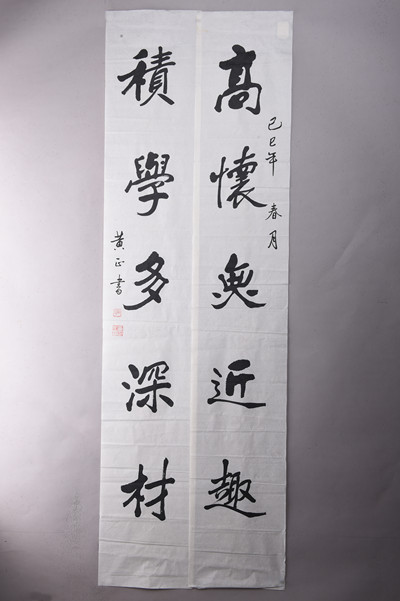 高懷無近趣
己巳年 春月
積學多深材
黄正書